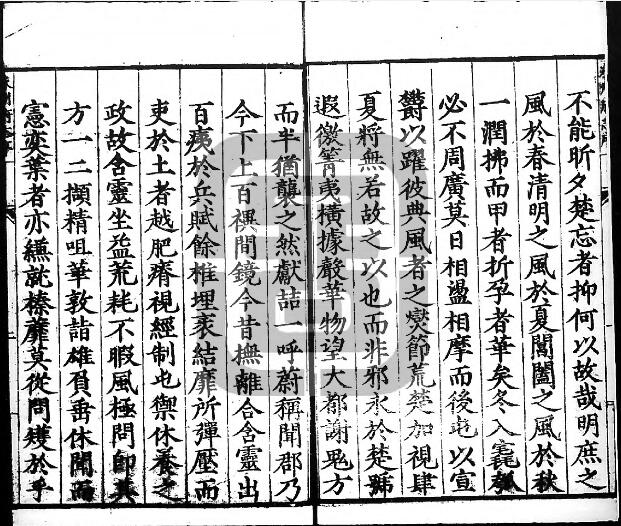 不能昕夕楚忘者抑何以故哉明庶之
風於春清明之風於夏閶闔之風於秋
一潤拂而甲者折孕者華矣冬入
必不周廣莫日相盪相摩而後屯以宣
欝以躍彼典風者之爕節荒楚加視肆
夏將無若故之以也而非邪永於楚號
遐徼箐夷橫據聲華物望大都謝鬼方
而半猶襲之然獻喆一呼蔚稱聞郡乃
今下上百禩間鏡今昔撫離合含靈出
百痍於兵賦餘椎埋裹結靡所彈壓而
吏於土者越肥瘠視經制屯禦休養之
政故含靈坐益荒耗不暇風極問卽其
方一二擷精咀華敦詣雄負番休聞而
憲奕葉者亦纁就榛蘼莫從問矱於乎